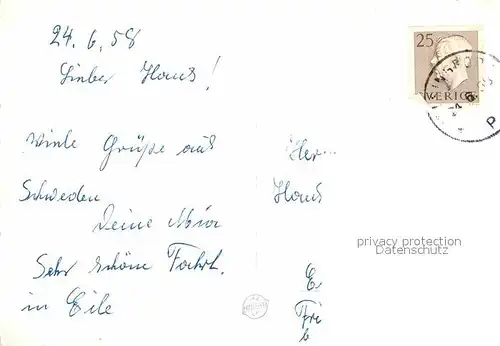 24.6.58
Lieber Hans!
Viele Grüße aus
Schweden
Deine
Sehr schöne Fahrt.
in Eile
25
SVERIGE
Herr
Hans
privacy protection
Datenschutz
E.
Fri